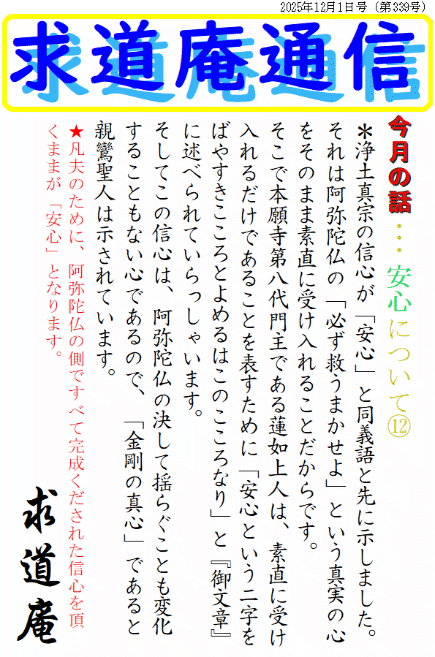 2025年12月1日号（第339号）
求道庵通信
今月の話…安心について⑫
＊浄土真宗の信心が「安心」と同義語と先に示しました。
それは阿弥陀仏の「必ず救うまかせよ」という真実の心
をそのまま素直に受け入れることだからです。
そこで本願寺第八代門主である蓮如上人は、素直に受け
入れるだけであることを表すために「安心という二字を
ばやすきこころとよめるはこのこころなり」と『御文章』
に述べられていらっしゃいます。
そしてこの信心は、阿弥陀仏の決して揺らぐことも変化
することもない心であるので、「金剛の真心」であると
親鸞聖人は示されています。
★凡夫のために、阿弥陀仏の側ですべて完成くだされた信心を頂
くままが「安心」となります。
求道庵